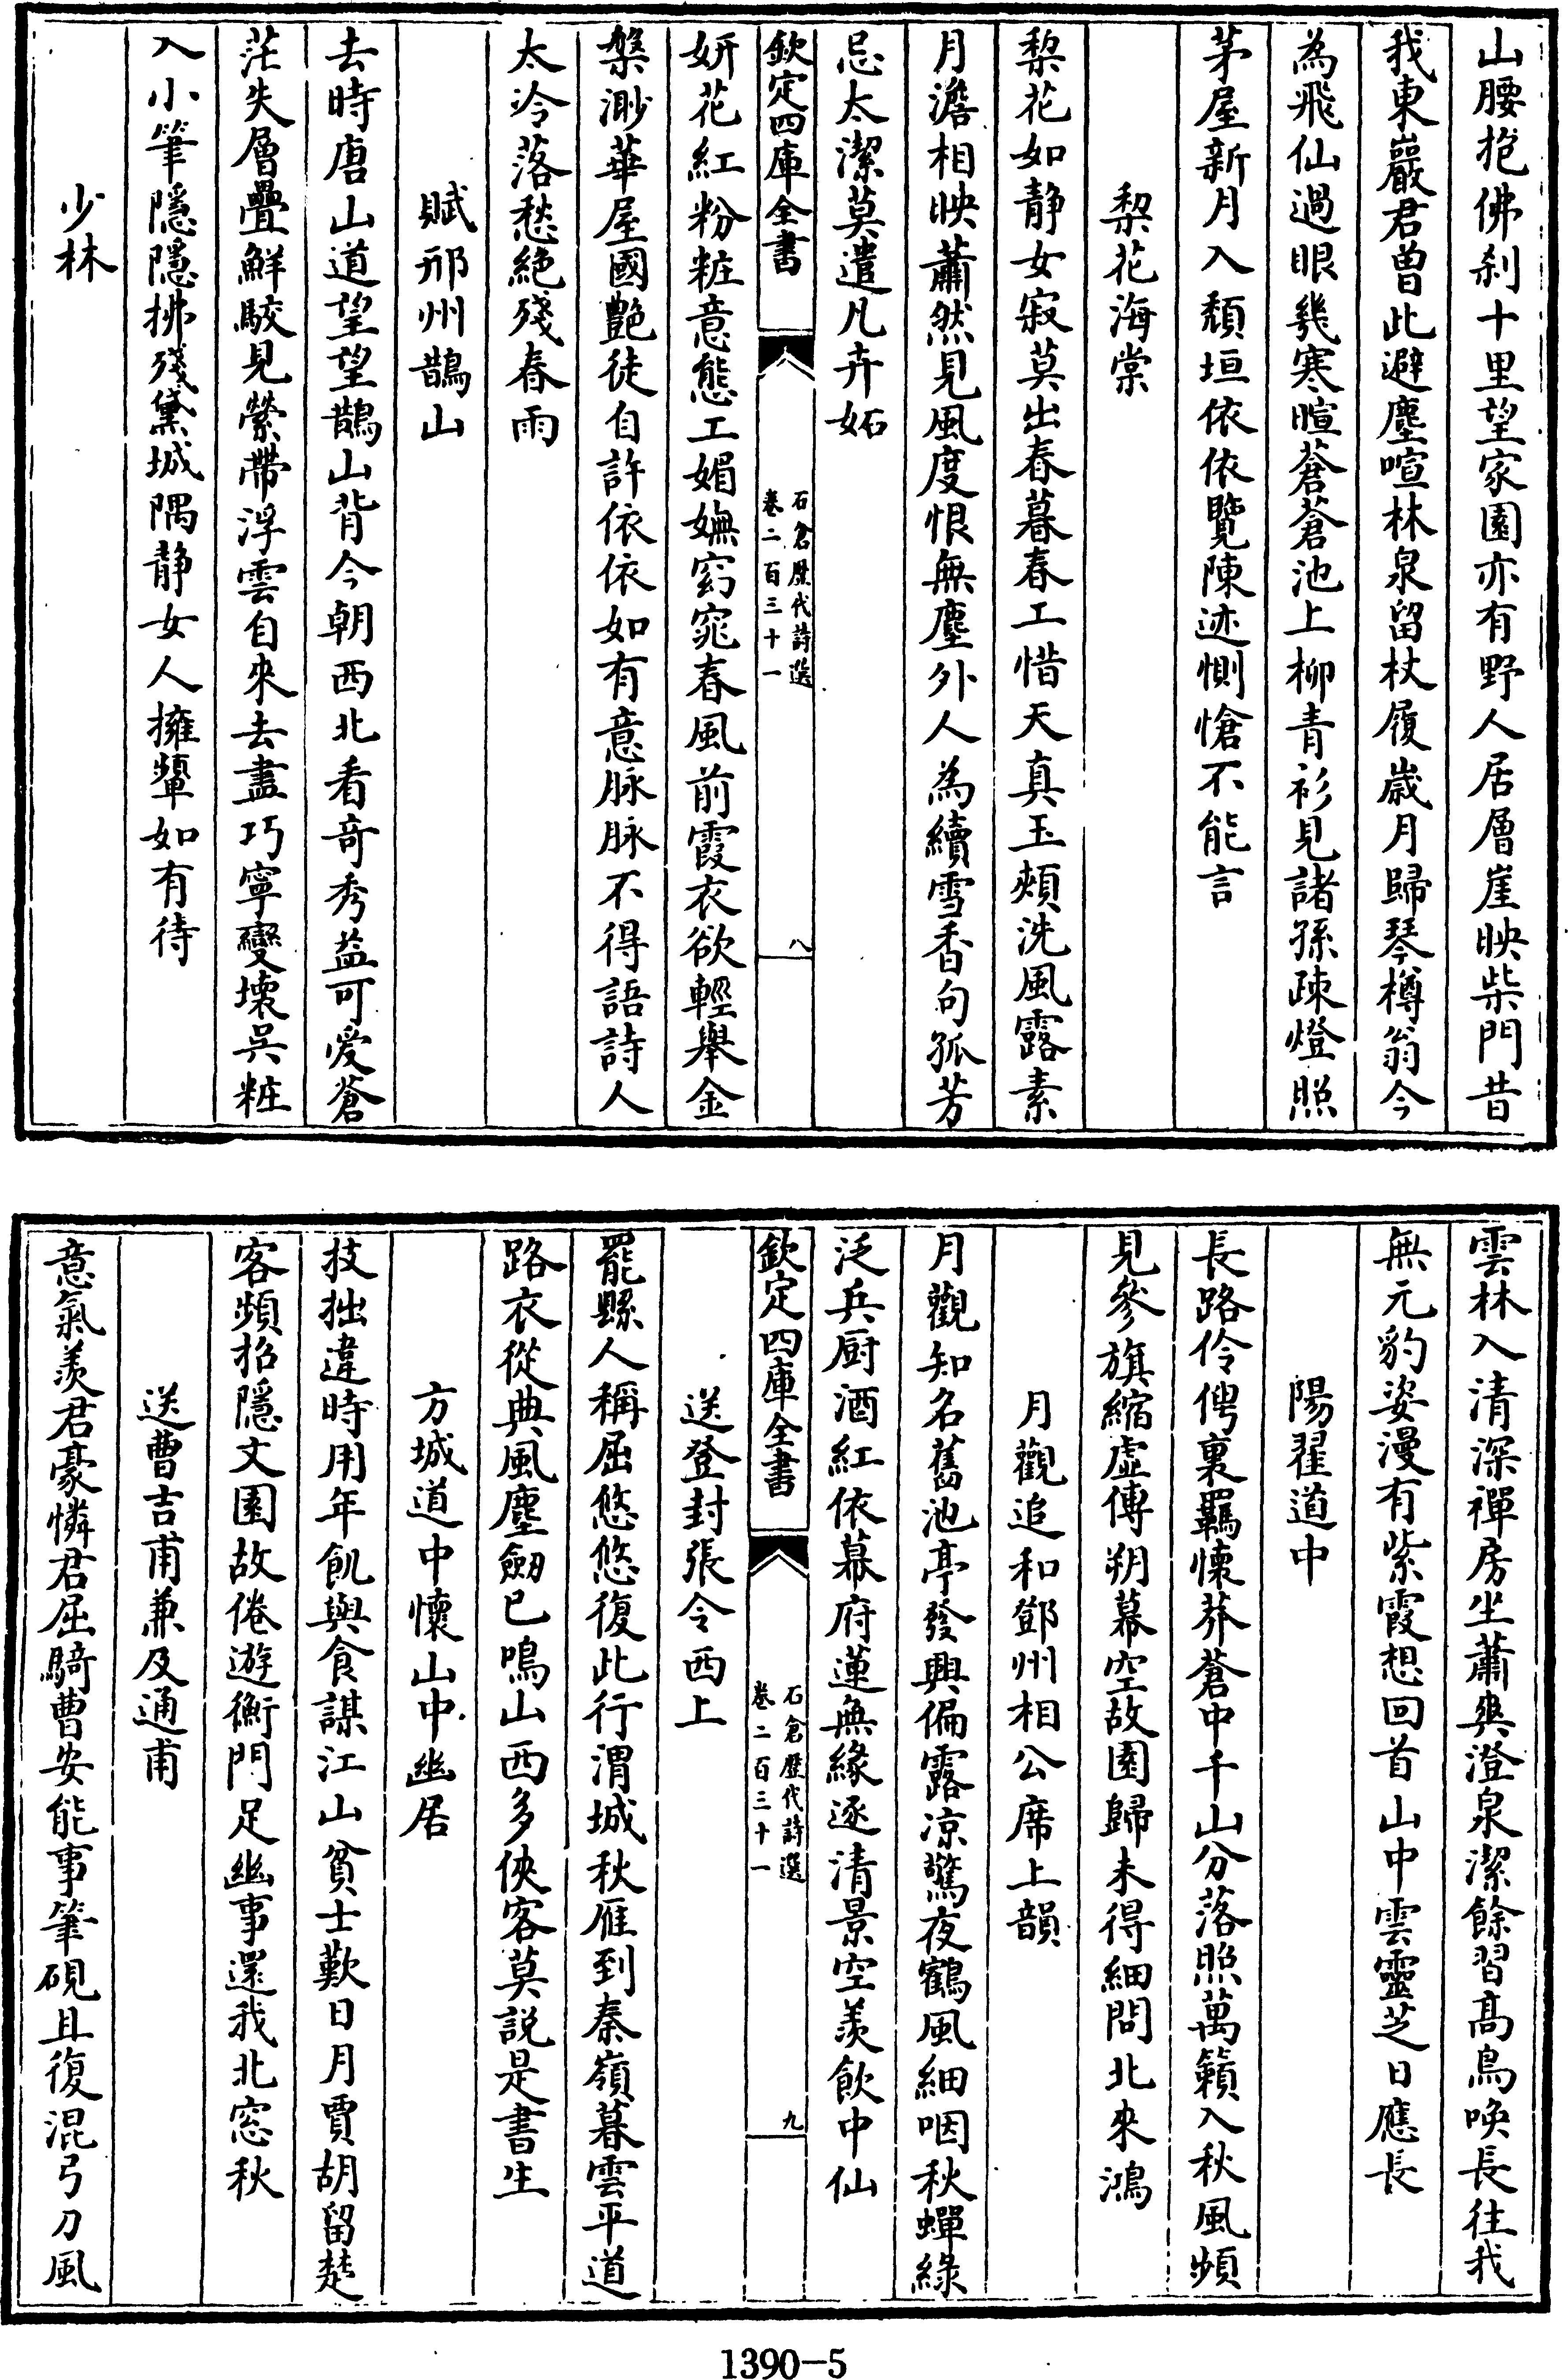 山腰抱佛刹十里望家園亦有野人居層崖映柴門昔
我東巖君曽此避塵喧林泉留杖履歲月歸琴樽翁今
為飛仙過眼幾寒暄蒼蒼池上柳青衫見諸孫疎燈照
茅屋新月入頹垣依依覽陳迹惻愴不能言
梨花海棠
梨花如静女寂寞出春暮春工惜天真玉頰洗風露素
月澹相映蕭然見風度恨無塵外人為續雪香句孤芳
忌太潔莫遣凡卉妬
欽定四庫全書
石倉歷代詩選
卷二百三十一
八
妍花紅粉粧意態工媚嫵窈窕春風前霞衣欲輕舉金
槃渺華屋國艶徒自許依依如有意脉脉不得語詩人
太冷落愁絶殘春雨
賦邢州鵲山
去時唐山道望望鵲山背今朝西北看奇秀益可愛蒼
茫失層疊鮮駮見縈帶浮雲自來去盡巧寧變壞吳粧
入小筆隠隠拂殘黛城隅静女人擁髻如有待
少林
雲林入清深禪房坐蕭爽澄泉潔餘習髙鳥喚長往我
無元豹姿漫有紫霞想回首山中雲靈芝日應長
陽翟道中
長路伶俜裏羈懷莽蒼中千山分落照萬籟入秋風頻
見參旗縮虚傳朔幕空故園歸未得細問北來鴻
月觀追和鄧州相公席上韻
月觀知名舊池亭發興偏露凉驚夜鶴風細咽秋蟬綠
泛兵厨酒紅依幕府蓮無緣逐清景空羡飲中仙
欽定四庫全書
石倉歷代詩選
卷二百三十一
九
送登封張令西上
罷縣人稱屈悠悠復此行渭城秋雁到秦嶺暮雲平道
路衣從典風塵劒已鳴山西多俠客莫説是書生
方城道中懷山中幽居
技拙違時用年飢與食謀江山貧士歎日月賈胡留楚
客頻招隠文園故倦遊衡門足幽事還我北窓秋
送曹吉甫兼及通甫
意氣羡君豪憐君屈騎曹安能事筆硯且復混弓刀風
1390-5